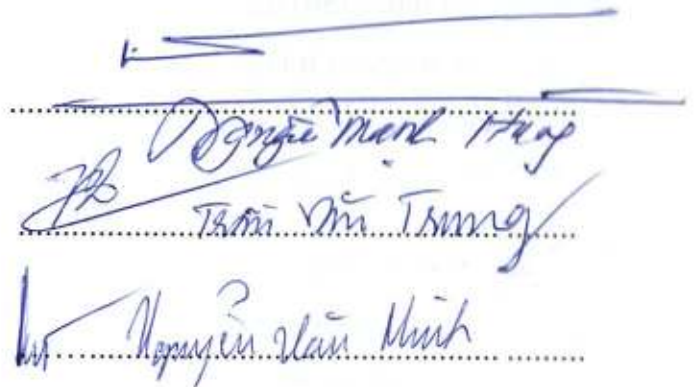 Nguyễn Mạnh Hùng
Trần Văn Trung
Nguyễn Văn Minh